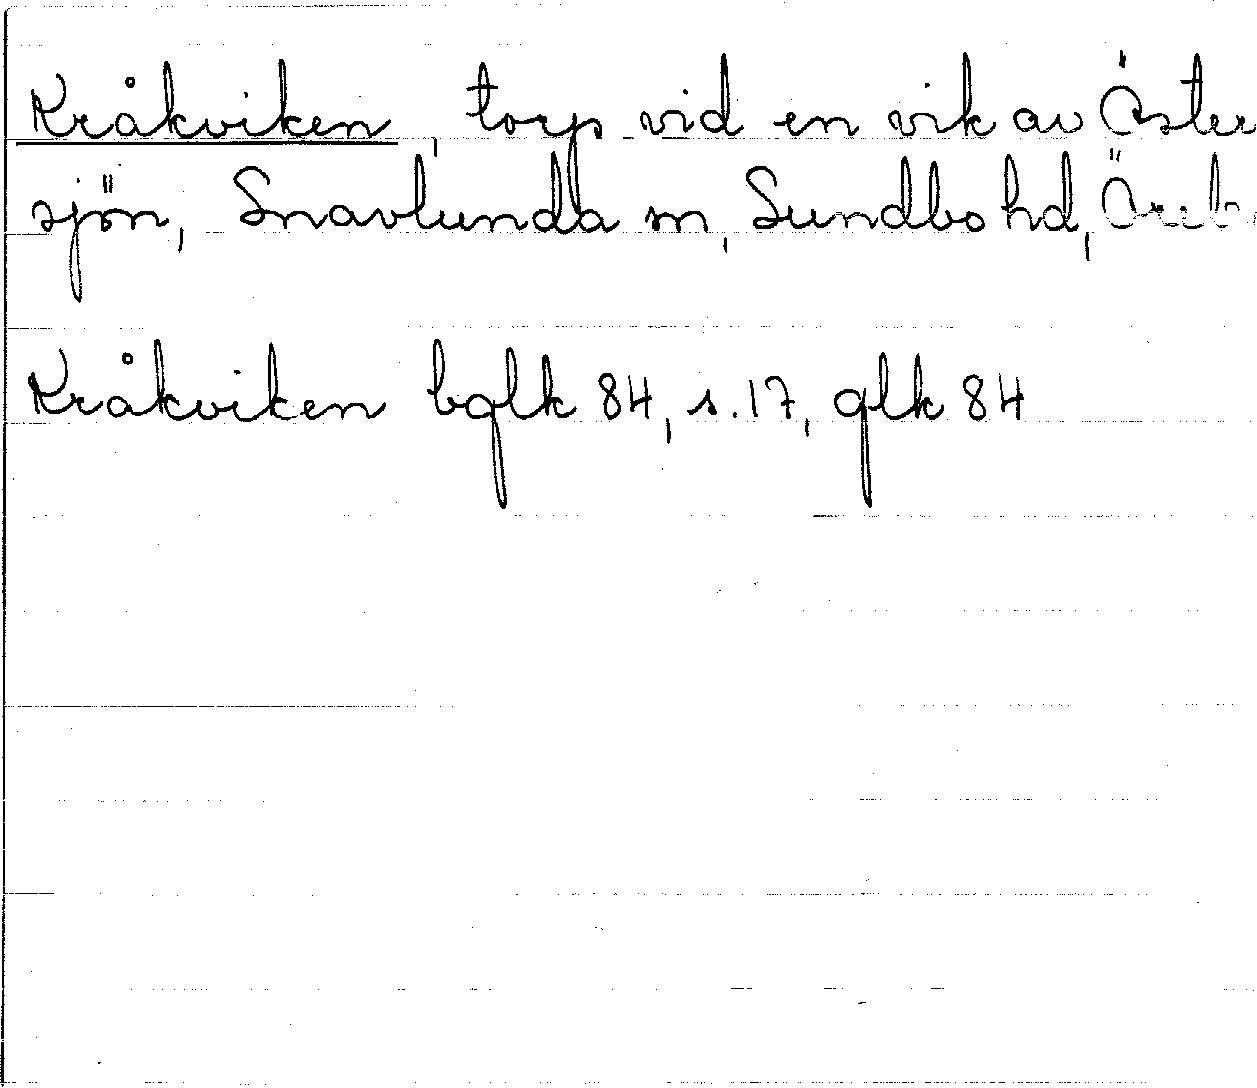 Kråkviken, torp vid en vik av Öster
sjön, Snavlunda sn, Sundbo hd, Öreb
Kråkviken bglk 84, s. 17, glk 84